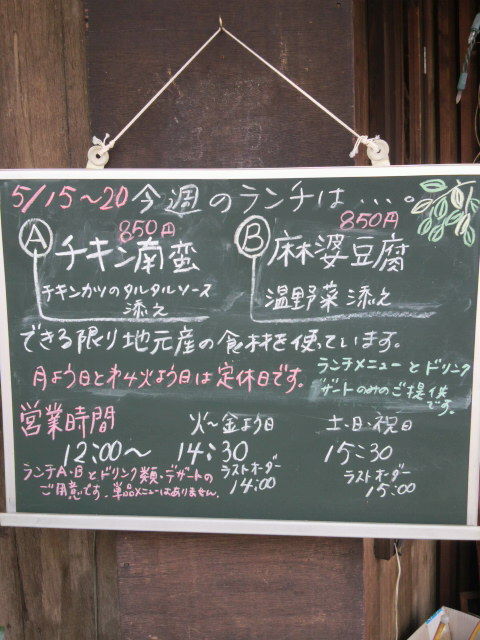 5/15~20 今週のランチは…。
Ⓐ 850円 チキン南蛮
チキンカツのタルタルソース
添え
Ⓑ 850円 麻婆豆腐
温野菜 添え
できる限り地元産の食材を使っています。
月よう日と第4火よう日は定休日です。
ランチメニューとドリンク
ザートのみのご提供
です。
営業時間
火～金よう日
土・日・祝日
12:00～ 14:30
15:30
ラストオーダー
14:00
ラストオーダー
15:00
ランチA・Bとドリンク類・デザートの
ご用意です。単品メニューはありません。